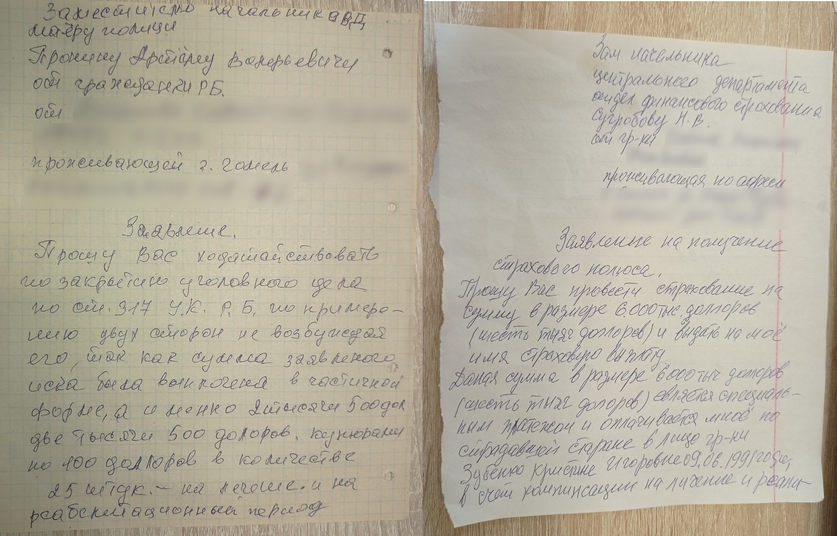 Заместителю начальника ОВД
майору полиции
Пронину Артёму Валерьевичу
от гражданки РБ.
от
проживающей г. Гомель
Заявление.
Прошу Вас ходатайствовать
по закрытию уголовного дела
по ст. 317 У.К. Р.Б, по примере-
нию двух сторон не возбуждая
его, так как сумма заявленого
иска была выплочена в частичной
форме, а и менно 2 тысячи 500 дол
две тысячи 500 долоров. купюрами
по 100 долларов в количестве
25 штук. - на лечение. и на
реабелитационный период
Зам начальника
центрального департамента
отдел финансового строхования
Сугробову Н. В.
от гр-ки
проживающая по адресу
Заявление на получение
страхового полюса.
Прошу Вас провести страхование на
сумму в размере 6000 тыс. долоров
(шесть тыяч долоров) и выдать на моё
имя страховую выплату
Даная сумма в размере 6000 тыч долоров
(шесть тыяч долоров) является специаль-
ным платежом и оплачивается мной по
стродавшей стороне в лице гр-ни
Зуенко Кристине Игоровне 09.06.1991 года,
в счёт компинсации на личение и реаби-